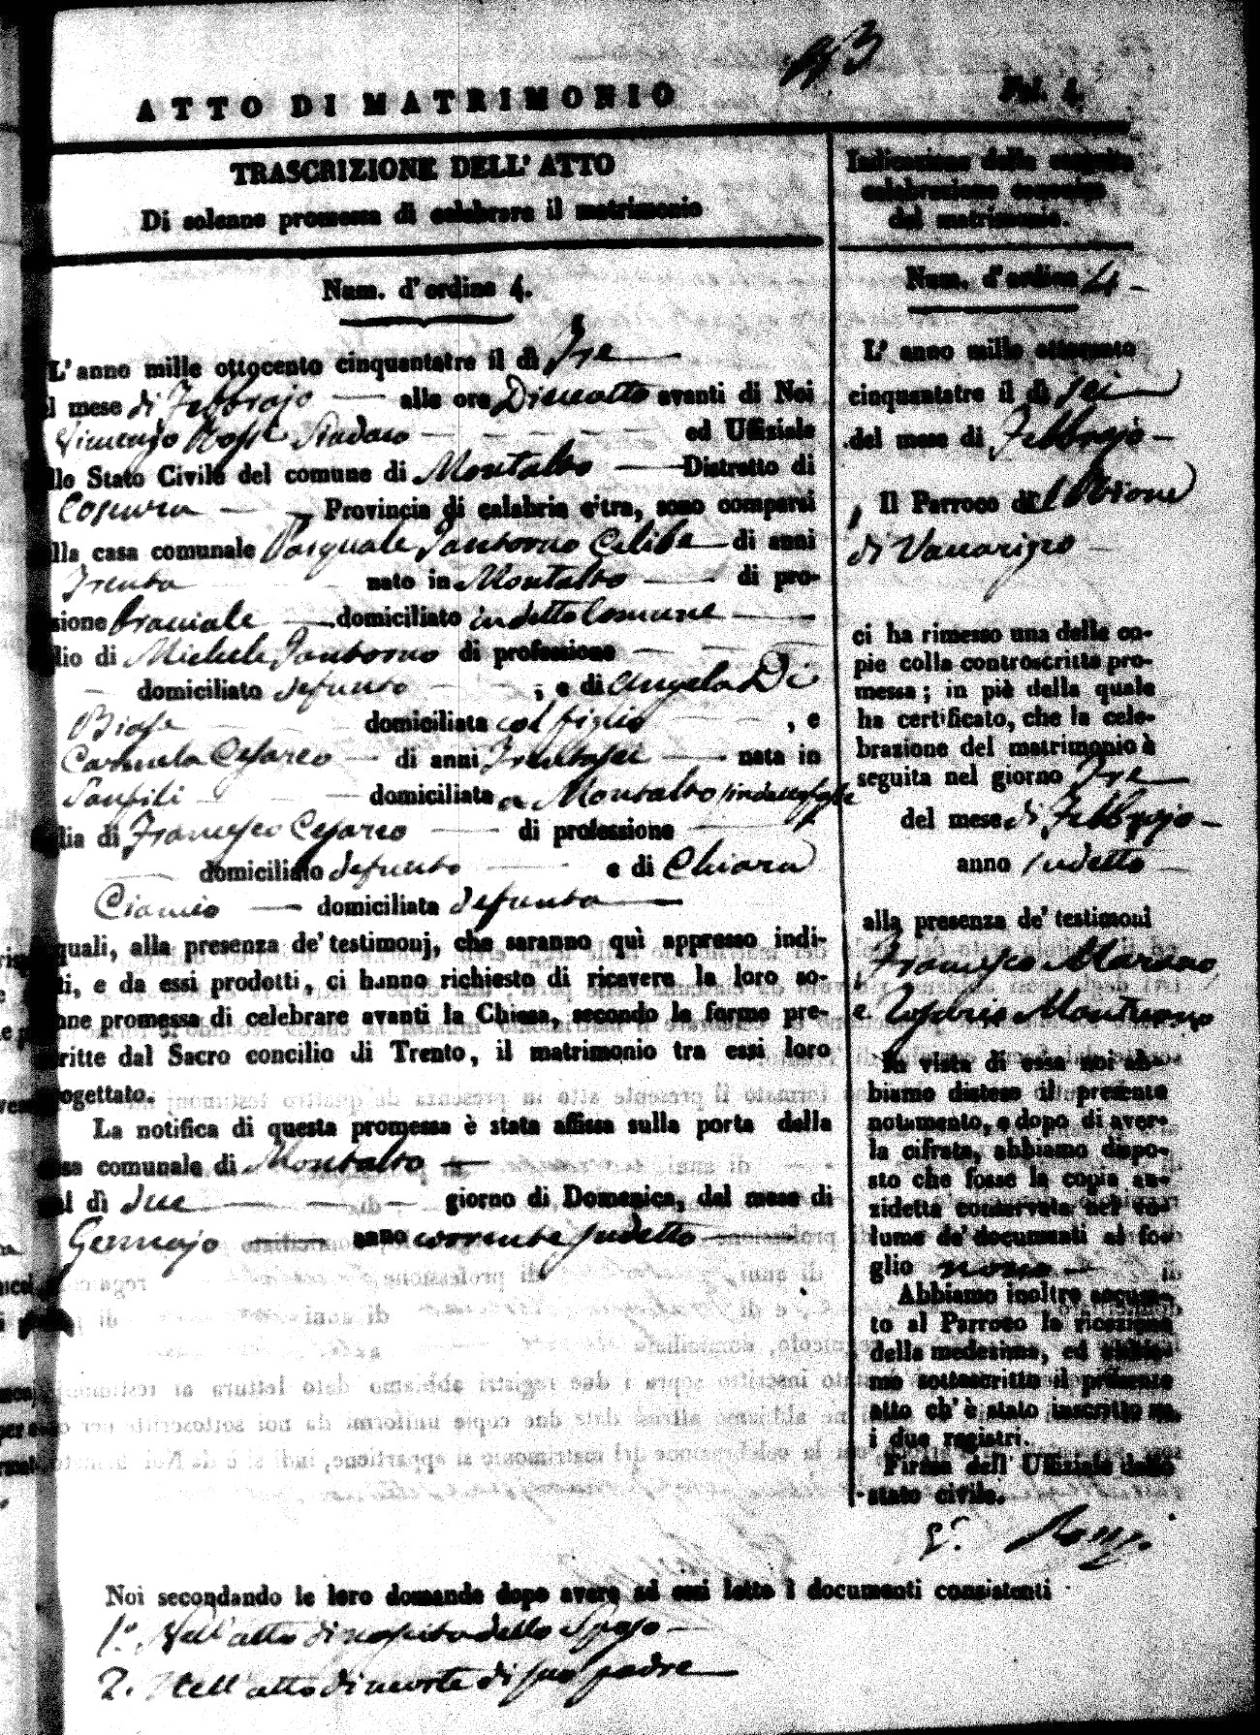 ATTO DI MATRIMONIO
Fol. 4.
TRASCRIZIONE DELL' ATTO
Di solenne promessa di celebrare il matrimonio
Num. d'ordine 4.
L'anno mille ottocento cinquantatre il dì Tre
l mese di Febbrajo alle ore Dieciotto avanti di Noi
Vincenzo Rossi Sindaco ed Uffiziale
llo Stato Civile del comune di Montalto Distretto di
Cosenza Provincia di calabria citra, sono comparsi
lla casa comunale Pasquale Santoro Celibe di anni
Trenta nato in Montalto di pro-
sione braciale domiciliato in detto Comune
lio di Michele di professione
domiciliato defunto ; e di Angela Di
Biase domiciliata col figlio , e
Carmela Cesareo di anni Trentasei nata in
Sanfili domiciliata a Montalto
lia di Francesco Cesareo di professione
domiciliato defunto e di Chiara
domiciliata defunta
quali, alla presenza de' testimonj, che saranno quì appresso indi-
ti, e da essi prodotti, ci hanno richiesto di ricevere la loro so-
nne promessa di celebrare avanti la Chiesa, secondo le forme pre-
ritte dal Sacro concilio di Trento, il matrimonio tra essi loro
ogettato.
La notifica di questa promessa è stata affissa sulla porta della
sa comunale di Montalto
l dì due giorno di Domenica, del mese di
Gennajo anno corrente sudetto
Indicazione della seguita
celebrazione canonica
del matrimonio.
Num. d'ordine 4
L' anno mille ottocento
cinquantatre il dì sei
del mese di Febbrajo
Il Parroco di
di Vaccarizzo
ci ha rimesso una delle co-
pie colla controscritta pro-
messa; in piè della quale
ha certificato, che la cele-
brazione del matrimonio è
seguita nel giorno Tre
del mese di Febbrajo
anno sudetto
alla presenza de' testimonî
Francesco Marano
e
In vista di essa noi ab-
biamo disteso il presente
notamento, e dopo di aver-
la cifrata, abbiamo dispo-
sto che fosse la copia an-
zidetta conservata nel vo-
lume de' documenti al fo-
glio nono
Abbiamo inoltre accusa-
to al Parroco la ricezione
della medesima, ed abbia-
mo sottoscritto il presente
atto ch' è stato inscritto su
i due registri.
Firma dell' Uffiziale dello
stato civile.
V. Rossi
Noi secondando le loro domande dopo avere ad essi letto i documenti consistenti
1.° Nell' atto di nascita dello Sposo
2. Nell' atto di morte di suo padre